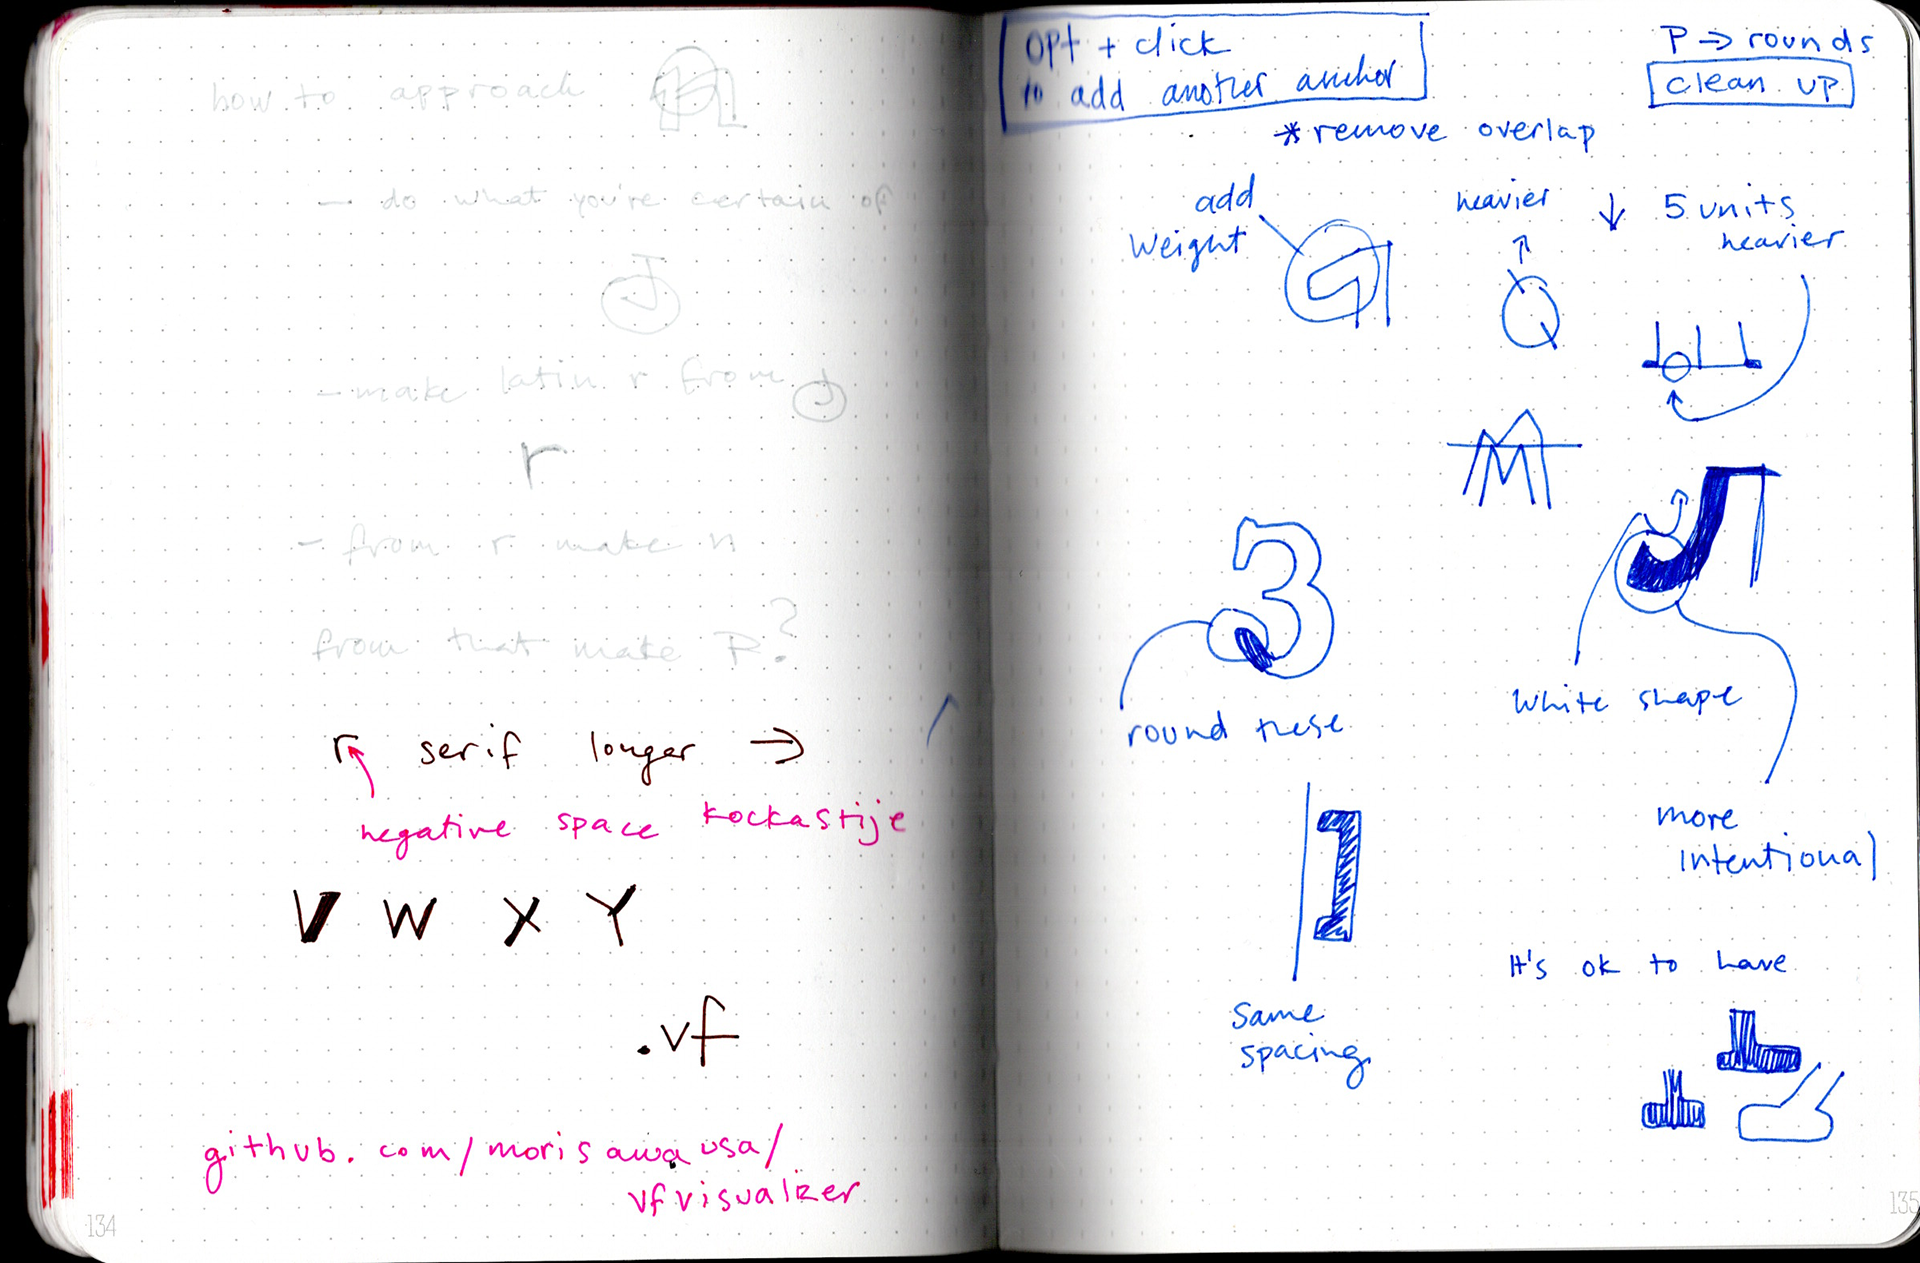 how to approach
- do what you're certain of
- make latin r from
r
- from r make n
from that make P?
r serif longer →
negative space kockastije
V W X Y
.vf
github.com/morisawausa/
vfvisualizer
134
opt + click
to add another anchor
P → rounds
clean up
*remove overlap
add
weight
heavier
↓ 5 units
heavier
Q
M
3
round these
White shape
more
intentional
1
Same
spacing
It's ok to have
135